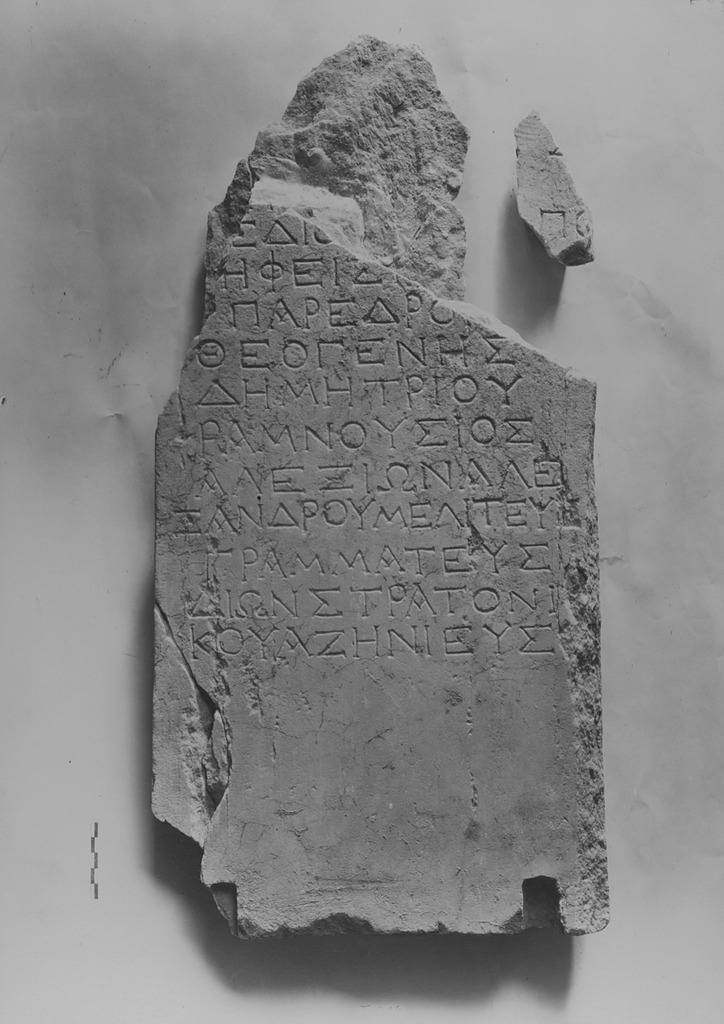 ΕΔΙΟ
ΗΦΕΙΔ
ΠΑΡΕΔΡΟ
ΘΕΟΓΕΝΗΣ
ΔΗΜΗΤΡΙΟΥ
ΡΑΜΝΟΥΣΙΟΣ
ΑΛΕΞΙΩΝΑΛΕ
ΞΑΝΔΡΟΥΜΕΛΙΤΕΥ
ΓΡΑΜΜΑΤΕΥΣ
ΔΙΩΝΣΤΡΑΤΟΝΙ
ΚΟΥΑΖΗΝΙΕΥΣ